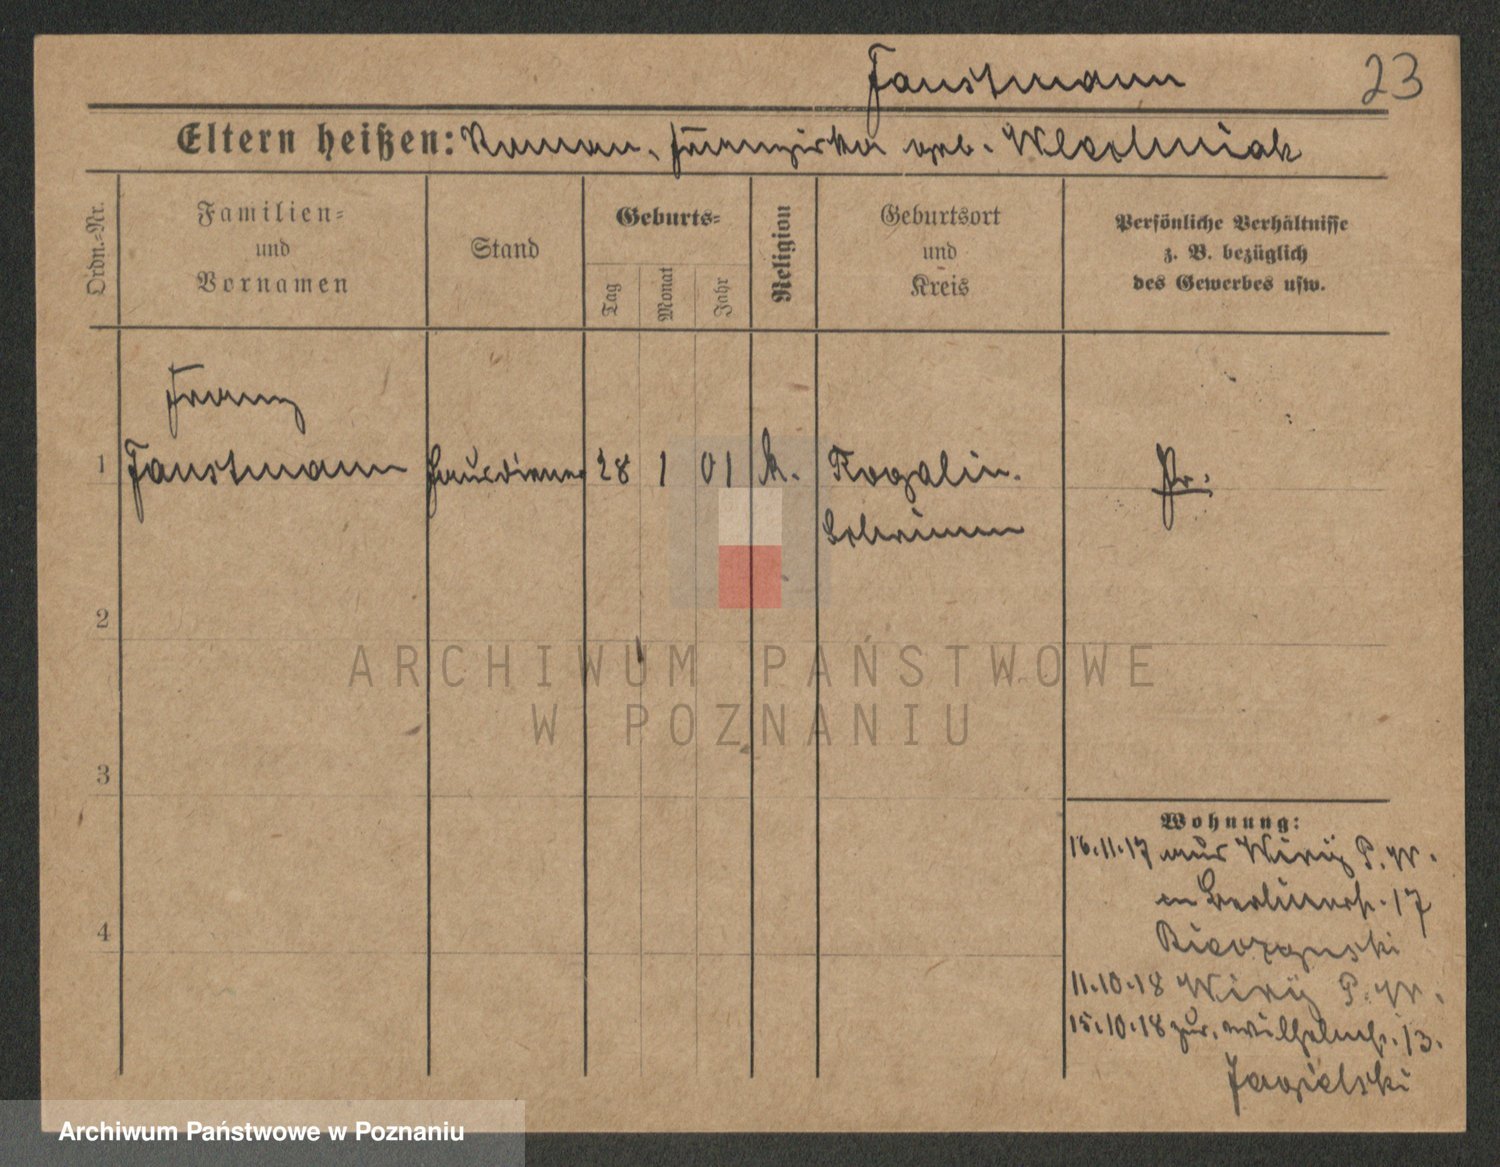 Faustmann 23
Eltern heißen: Roman, Franziska geb. Wleslniak
Ordn.=Nr.
Familien=
und
Vornamen
Stand
Geburts=
Tag
Monat
Jahr
Religion
Geburtsort
und
Kreis
Persönliche Verhältnisse
z. B. bezüglich
des Gewerbes usw.
Franz
1 Faustmann Hausdiener 28 1 01 k. Rogalin. Pr.
Schrimm
2
ARCHIWUM PAŃSTWOWE
W POZNANIU
3
4
Wohnung:
16.11.17 aus Wiry P. W.
n Berlinerstr. 17
11.10.18 Wiry P. W.
15.10.18 zur. Wilhelmstr. 13.
Jagielski
Archiwum Państwowe w Poznaniu